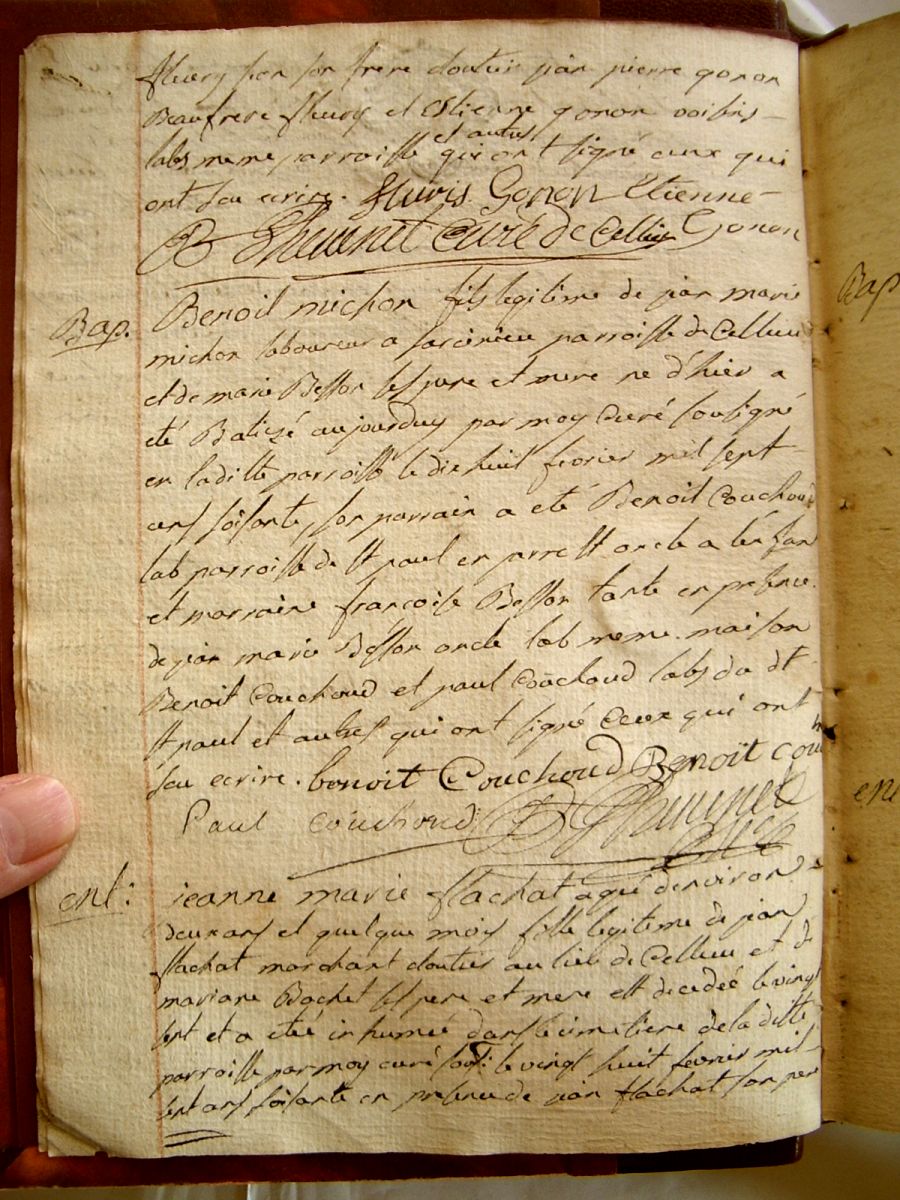 fleury son frere cloutier jean pierre gonon
Beaufrere fleury et Estienne gonon voisins
labs meme parroisse et autres qui ont signé ceux qui
ont scu ecrire. fluris Gonon Etienne
Gonon
Thevenet Curé de Cellieu
Bap. Benoit michon fils legitime de jean marie
michon laboureur a sarcinieu parroisse de Cellieu
et de marie Besson ses pere et mere ne d'hier a
eté Batizé aujourduy par moy Curé soussigné
en laditte parroisse le dix huit fevrier mil sept
cens soisante, son parrain a eté Benoit Couchoud
lab parroisse de st paul en jarrest oncle a lenfan
et marraine françoise Besson tante en presence
de jean marie Besson oncle lab meme maison
Benoit Couchoud et paul Couchoud labs du dt
st paul et autres qui ont signé Ceux qui ont
scu ecrire. benoit Couchoud Benoit cou
Paul couchoud Thevenet
Curé
ent: jeanne marie flachat agée denviron
deux ans et quelque mois fille legitime de jean
flachat marchant cloutier au lieu de Cellieu et de
mariane Bachet ses pere et mere est decedeé le vingt
sept et a eté inhumeé dans le cimetiere de la ditte
parroisse par moy curé sous: le vingt huit fevrier mil
sept cens soisante en presence de jean flachat son pere
Bap
ent